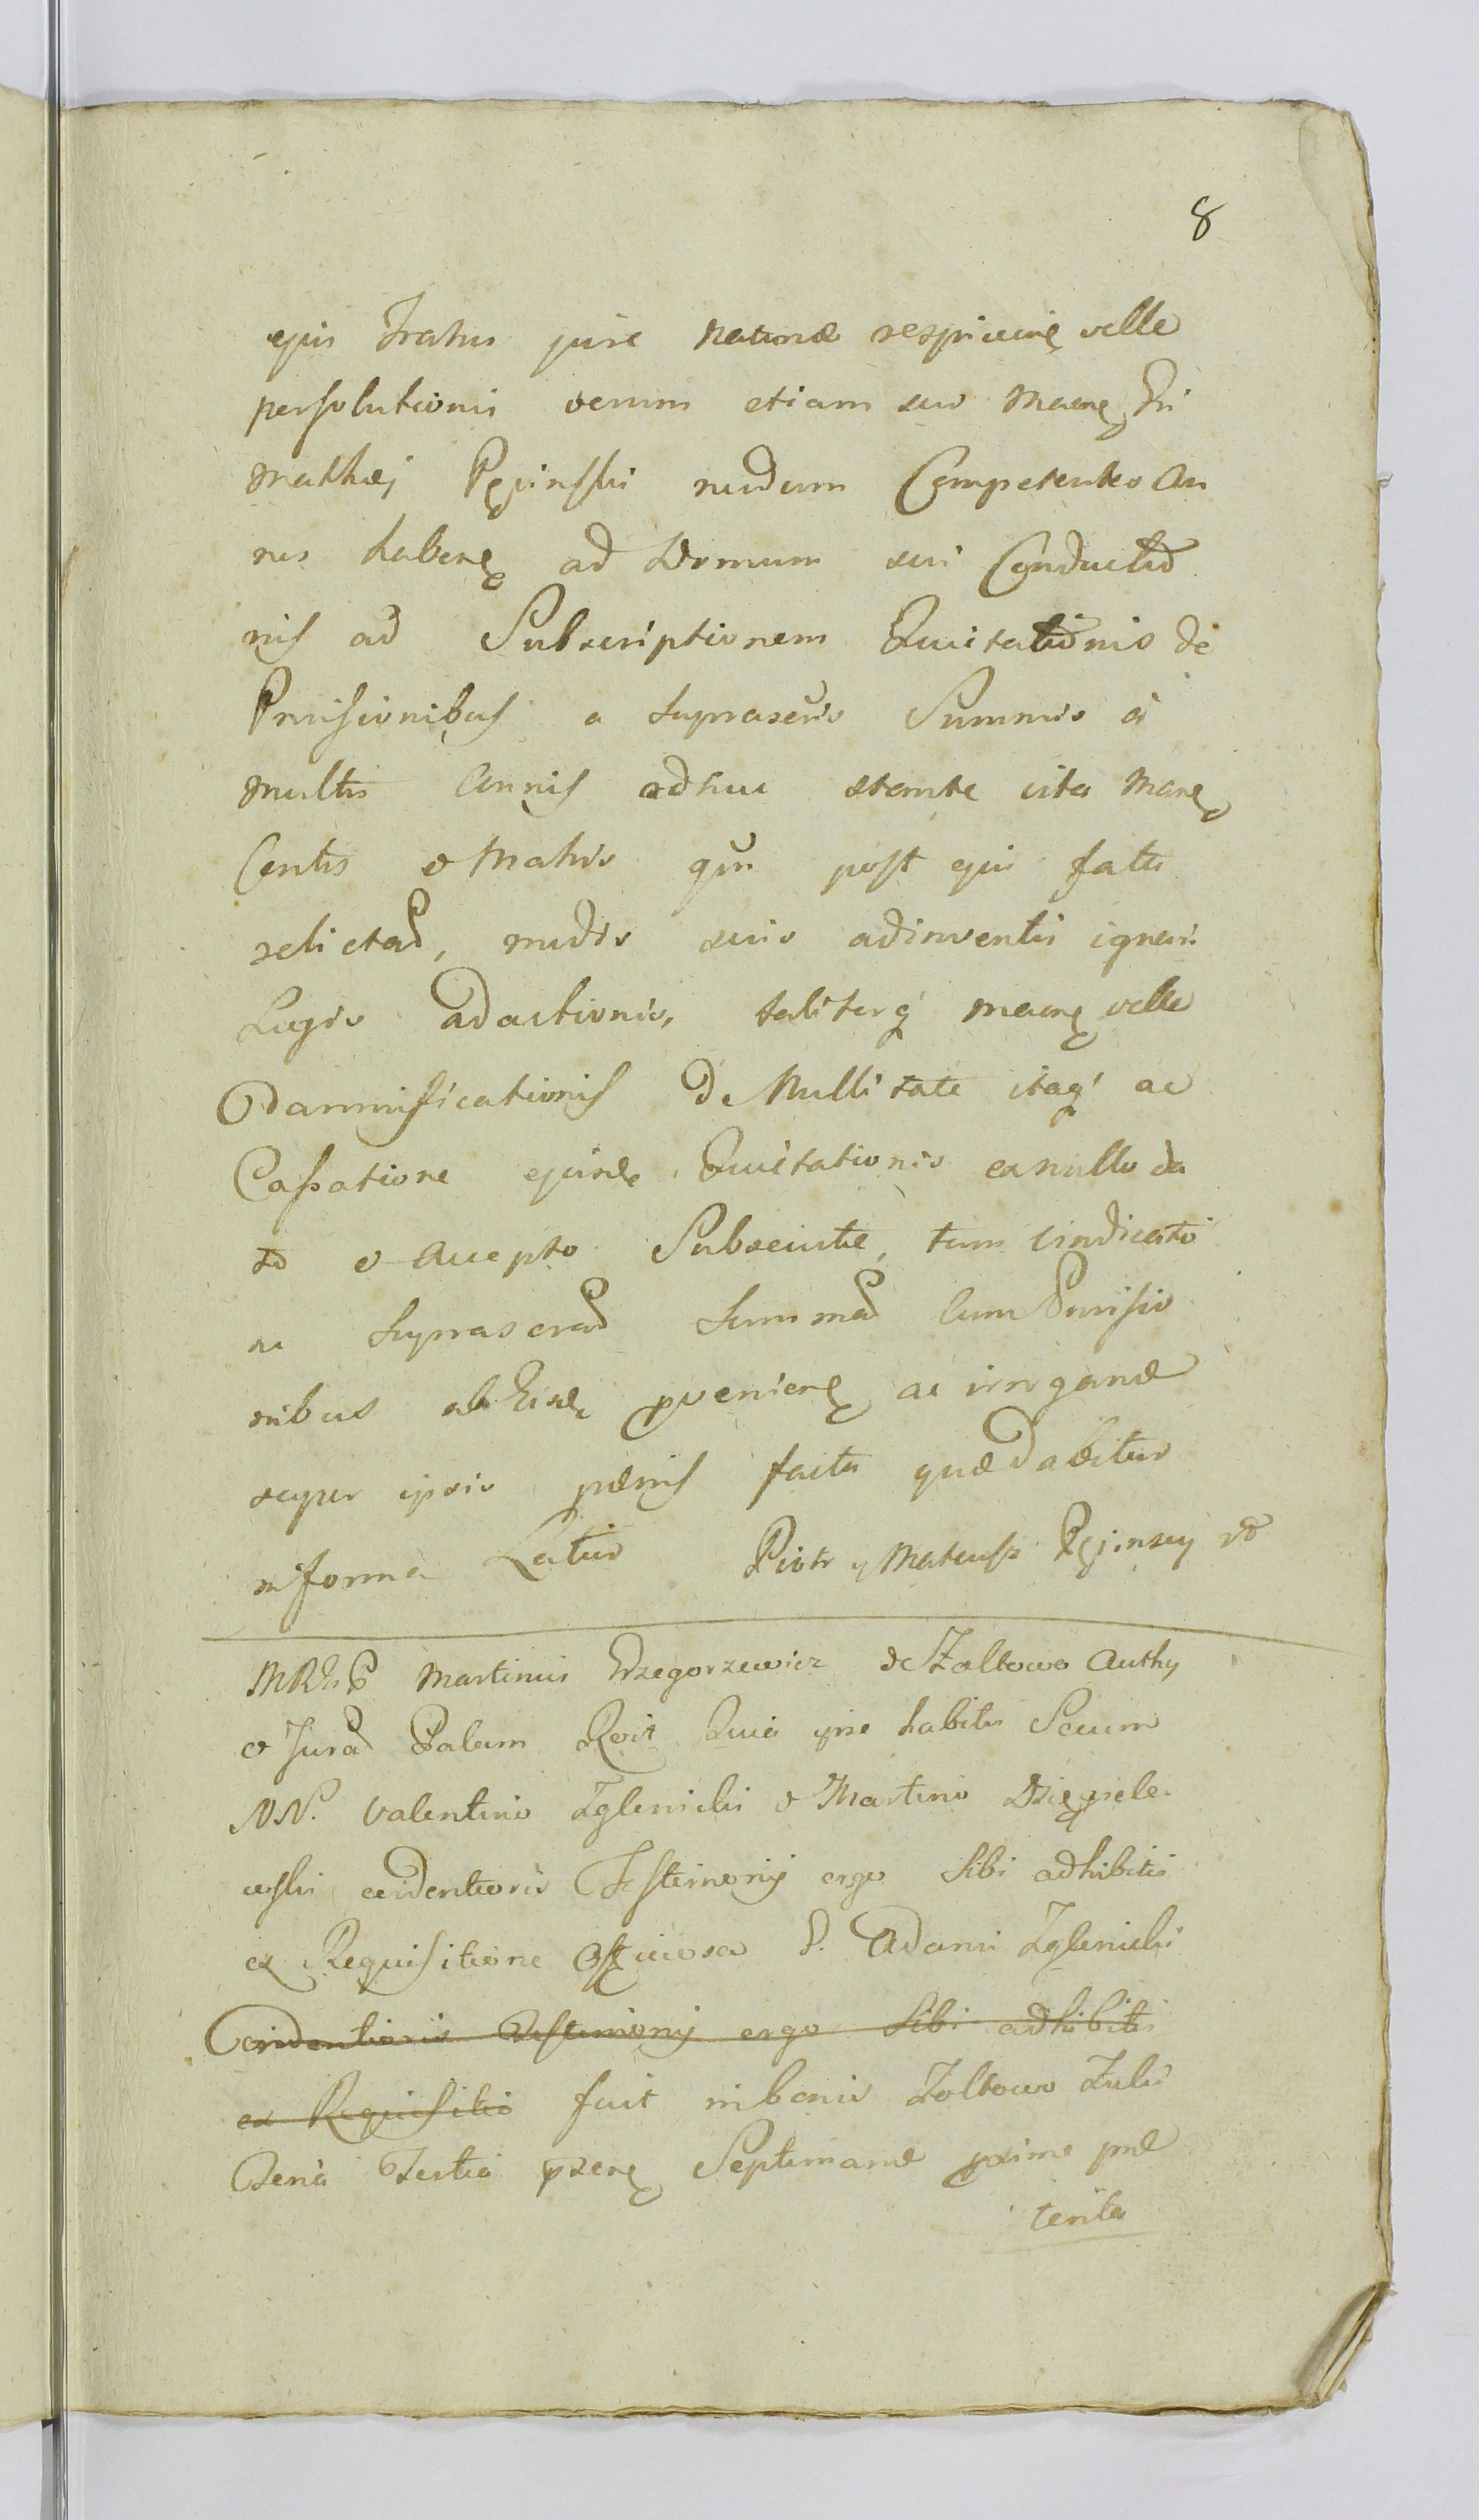 8
ejus Fratris jure naturæ respicien velle
persolutionis verum etiam suo maene Fri
Mathæj Rpinski nudum Competentes An
nos haben ad Domum sui Conductio
nis ad Subscriptionem Quitationis de
Provisionibus a suprascris Summis à
multis Annis adhuc stante vita Mane
Centis & Matris qm post ejus fata
relictad, nudis suis adinventis ignari
Legis adactionis, taliterq maene velle
Damnificationis De Nullitate itaq ac
Cassatione ejusde Quitationis ex nullo da
to & accepto Subsecutæ, tum vindicatio
ne suprascrad summad cum Provisio
nibus ab Eisde provenien ac irrogandæ
super ipsis pænis facta quæ Dabitur
in forma Latius Piotr y Mateusz
MRGP Martinus Grzegorzewicz de Zoltowo Authy
& Jurad Palam Rcit Quia ipse habitis Secum
NN. Valentino Zglenicki & Martino Dzięgiele
wski evidentioris Testimonij ergo sibi adhibitis
ex Requisitione Officiosa P. Adami Zglenicki
Evidentioris Testimonij ergo sibi adhibitis
ex Requisitio fuit in bonis Zoltowo
feria Tertia præsen Septimanæ proxime præ
terita